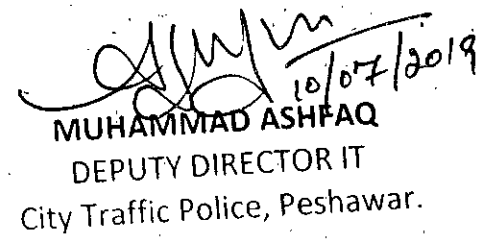 10/07/2019
MUHAMMAD ASHFAQ
DEPUTY DIRECTOR IT
City Traffic Police, Peshawar.